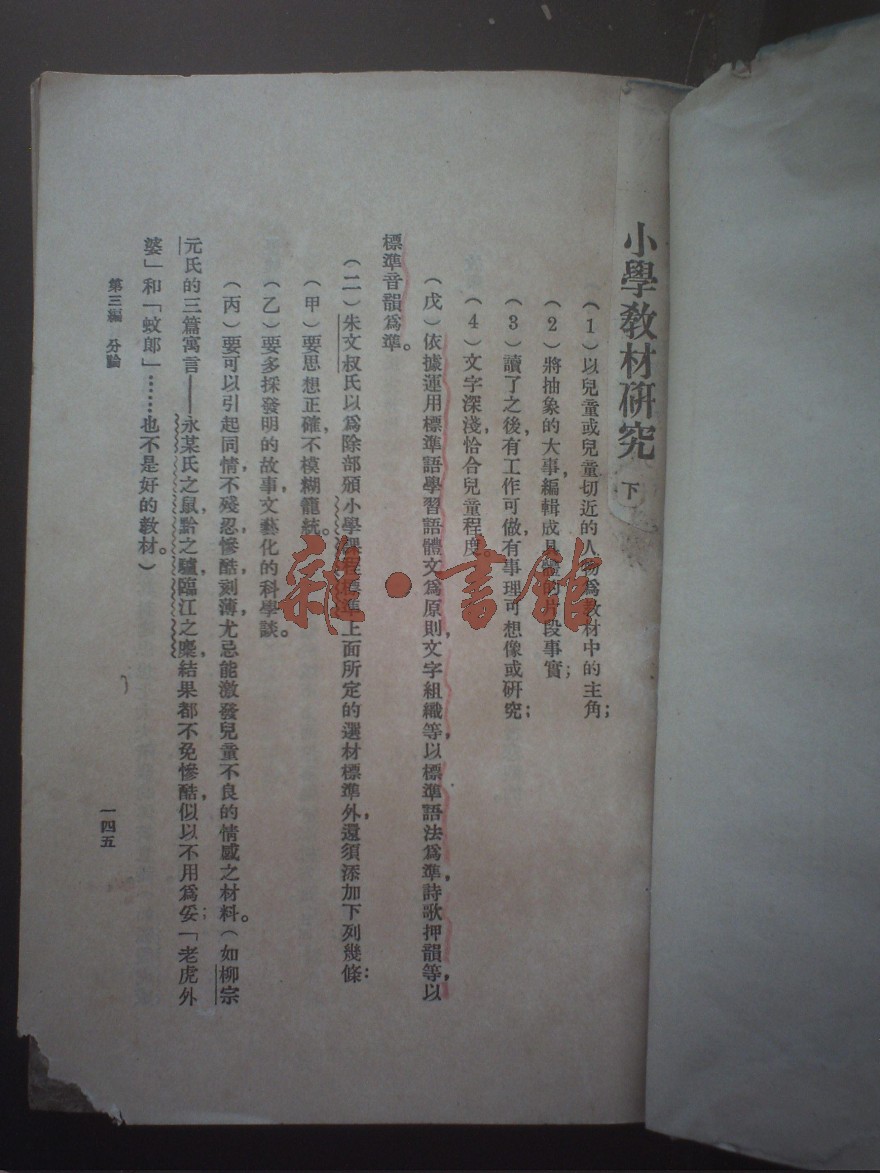 小學教材研究 下
（1）以兒童或兒童切近的人物爲教材中的主角；
（2）將抽象的大事，編輯成具體的片段事實；
（3）讀了之後，有工作可做，有事理可想像或研究；
（4）文字深淺，恰合兒童程度。
（戊）依據運用標準語學習語體文爲原則，文字組織等，以標準語法爲準，詩歌押韻等，以
標準音韻爲準。
（二）朱文叔氏以爲除部頒小學課程標準上面所定的選材標準外，還須添加下列幾條：
（甲）要思想正確，不模糊籠統。
（乙）要多採發明的故事，文藝化的科學談。
（丙）要可以引起同情，不殘忍慘酷刻薄，尤忌能激發兒童不良的情感之材料。（如柳宗
元氏的三篇寓言——永某氏之鼠，黔之驢，臨江之麋，結果都不免慘酷，似以不用爲妥；「老虎外
婆」和「蚊郎」……也不是好的教材。）
第三編 分論
一四五
雜·書館